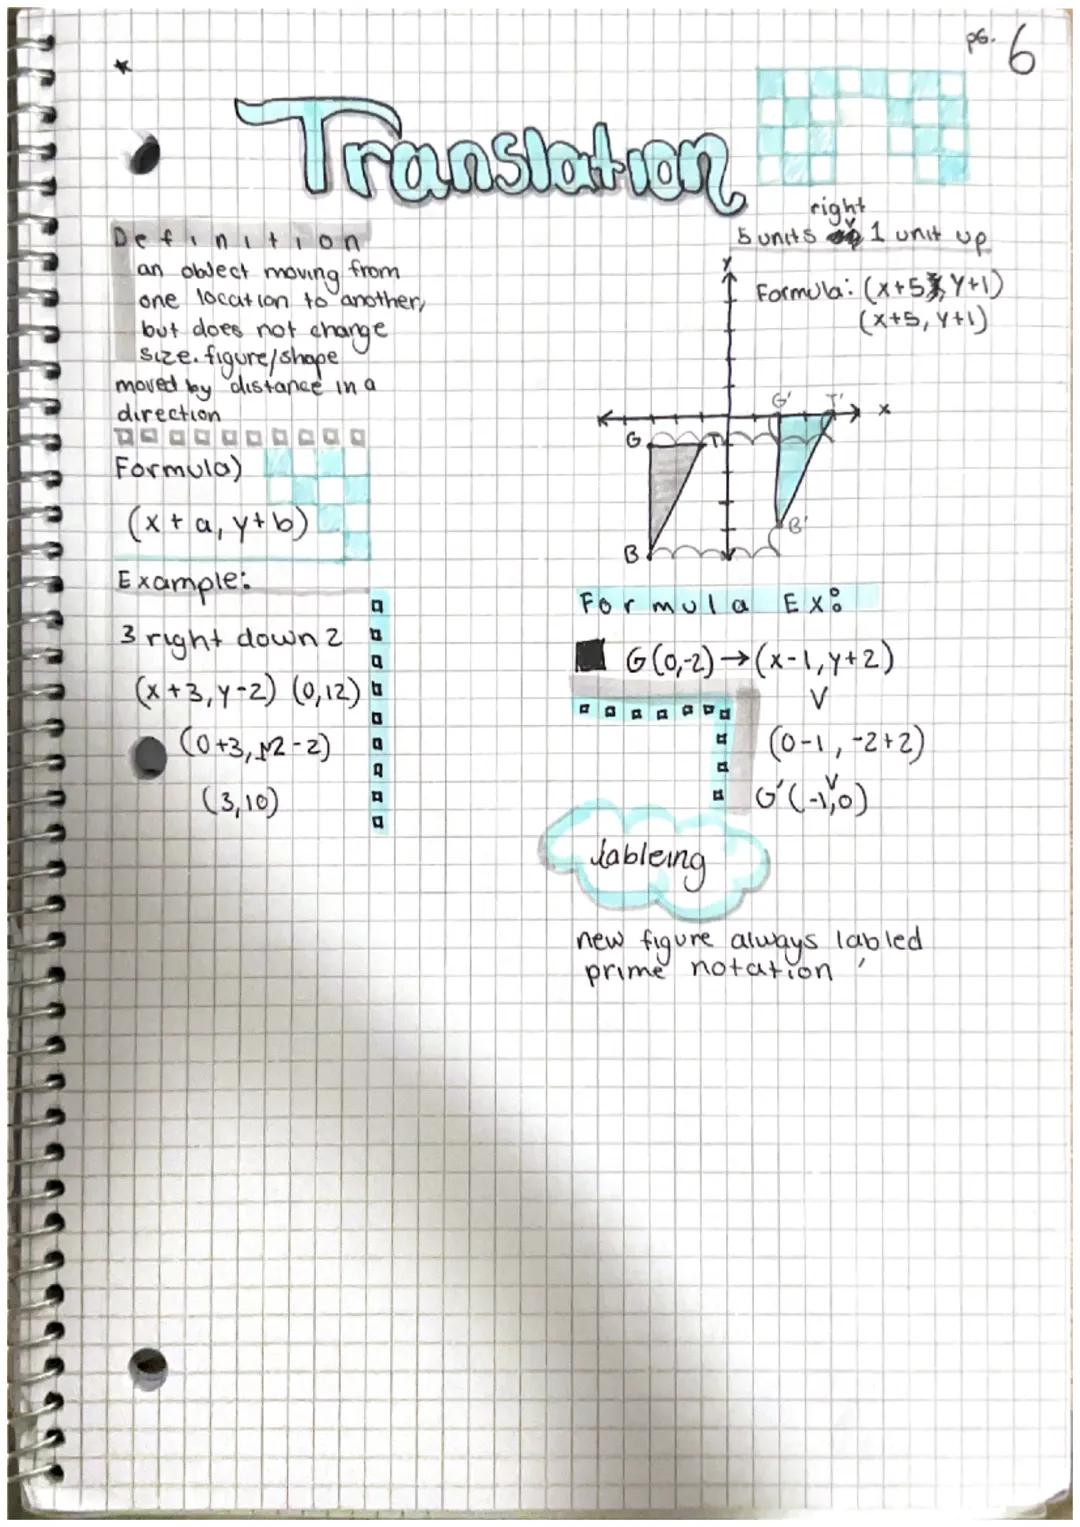 pg. 6
Translation
Definition
an object moving from
one location to another,
but does not change
size. figure/shape
moved by distance in a
direction
Formula)
(x + a, y+b)
Example:
3 right down 2
(x+3, y-2) (0,12)
(0+3, 12-2)
(3,10)
right
5 units 1 unit up
Formula: (x+5, y+1)
(x+5, y+1)
y
x
G' T'
G T
B'
B
Formula Ex:
G(0,-2)→(x-1, y+2)
(0-1, -2+2)
G'(-1,0)
lableing
new figure always labled
prime notation '